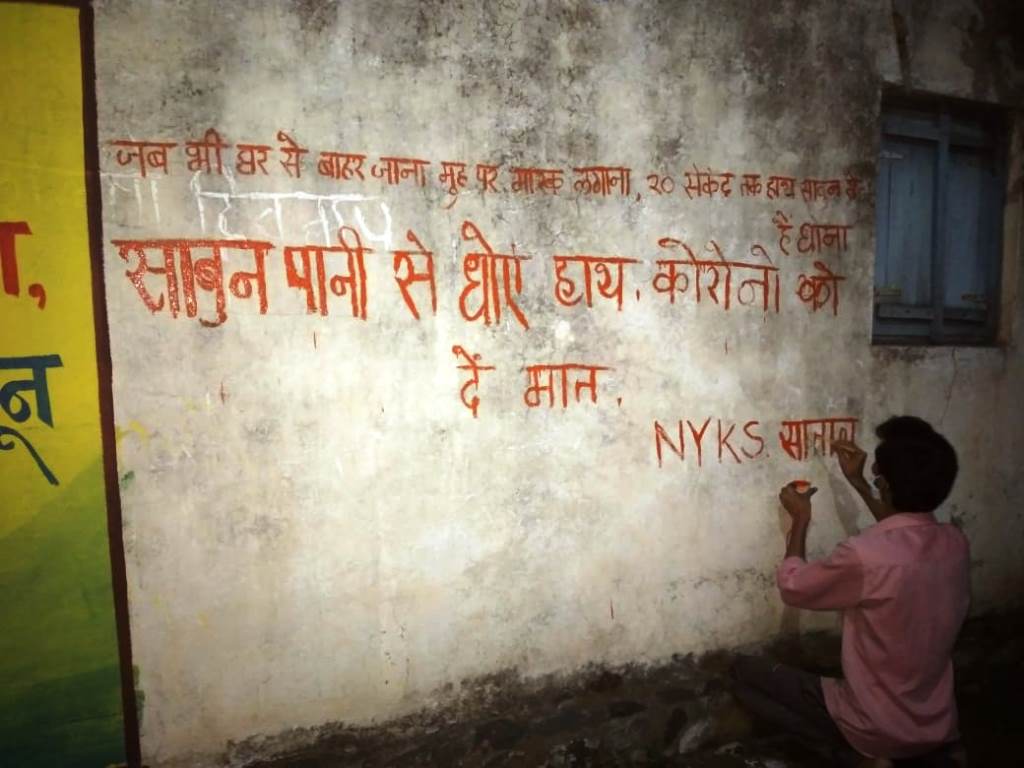 जब भी घर से बाहर जाना मुह पर मास्क लगाना, २० सेकेंद तक हाथ साबुन से
है धोना
साबुन पानी से धोएं हाथ. कोरोनो को
दें मात.
NYKS. सातारा
न